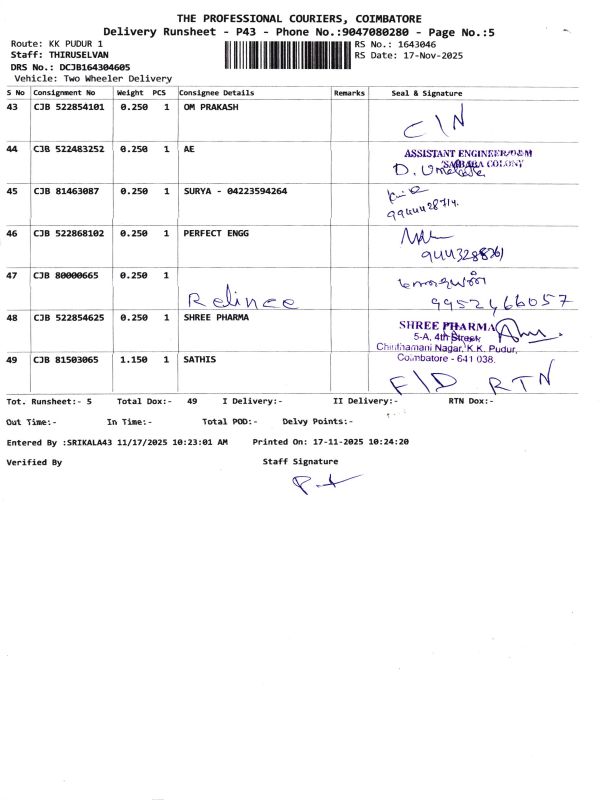 THE PROFESSIONAL COURIERS, COIMBATORE
Delivery Runsheet - P43 - Phone No.:9047080280 - Page No.:5
Route: KK PUDUR 1 RS No.: 1643046
Staff: THIRUSELVAN RS Date: 17-Nov-2025
DRS No.: DCJB164304605
Vehicle: Two Wheeler Delivery
S No Consignment No Weight PCS Consignee Details Remarks Seal & Signature
43 CJB 522854101 0.250 1 OM PRAKASH
C/N
44 CJB 522483252 0.250 1 AE
ASSISTANT ENGINEER/O&M
SAIBABA COLONY
D.
45 CJB 81463087 0.250 1 SURYA - 04223594264
46 CJB 522868102 0.250 1 PERFECT ENGG
9443288761
47 CJB 80000665 0.250 1
Relince 9952466057
48 CJB 522854625 0.250 1 SHREE PHARMA
SHREE PHARMA
5-A, 4th Street,
Chinthamani Nagar, K.K. Pudur,
Coimbatore - 641 038.
49 CJB 81503065 1.150 1 SATHIS
F/D RTN
Tot. Runsheet:- 5 Total Dox:- 49 I Delivery:- II Delivery:- RTN Dox:-
Out Time:- In Time:- Total POD:- Delvy Points:-
Entered By :SRIKALA43 11/17/2025 10:23:01 AM Printed On: 17-11-2025 10:24:20
Verified By Staff Signature